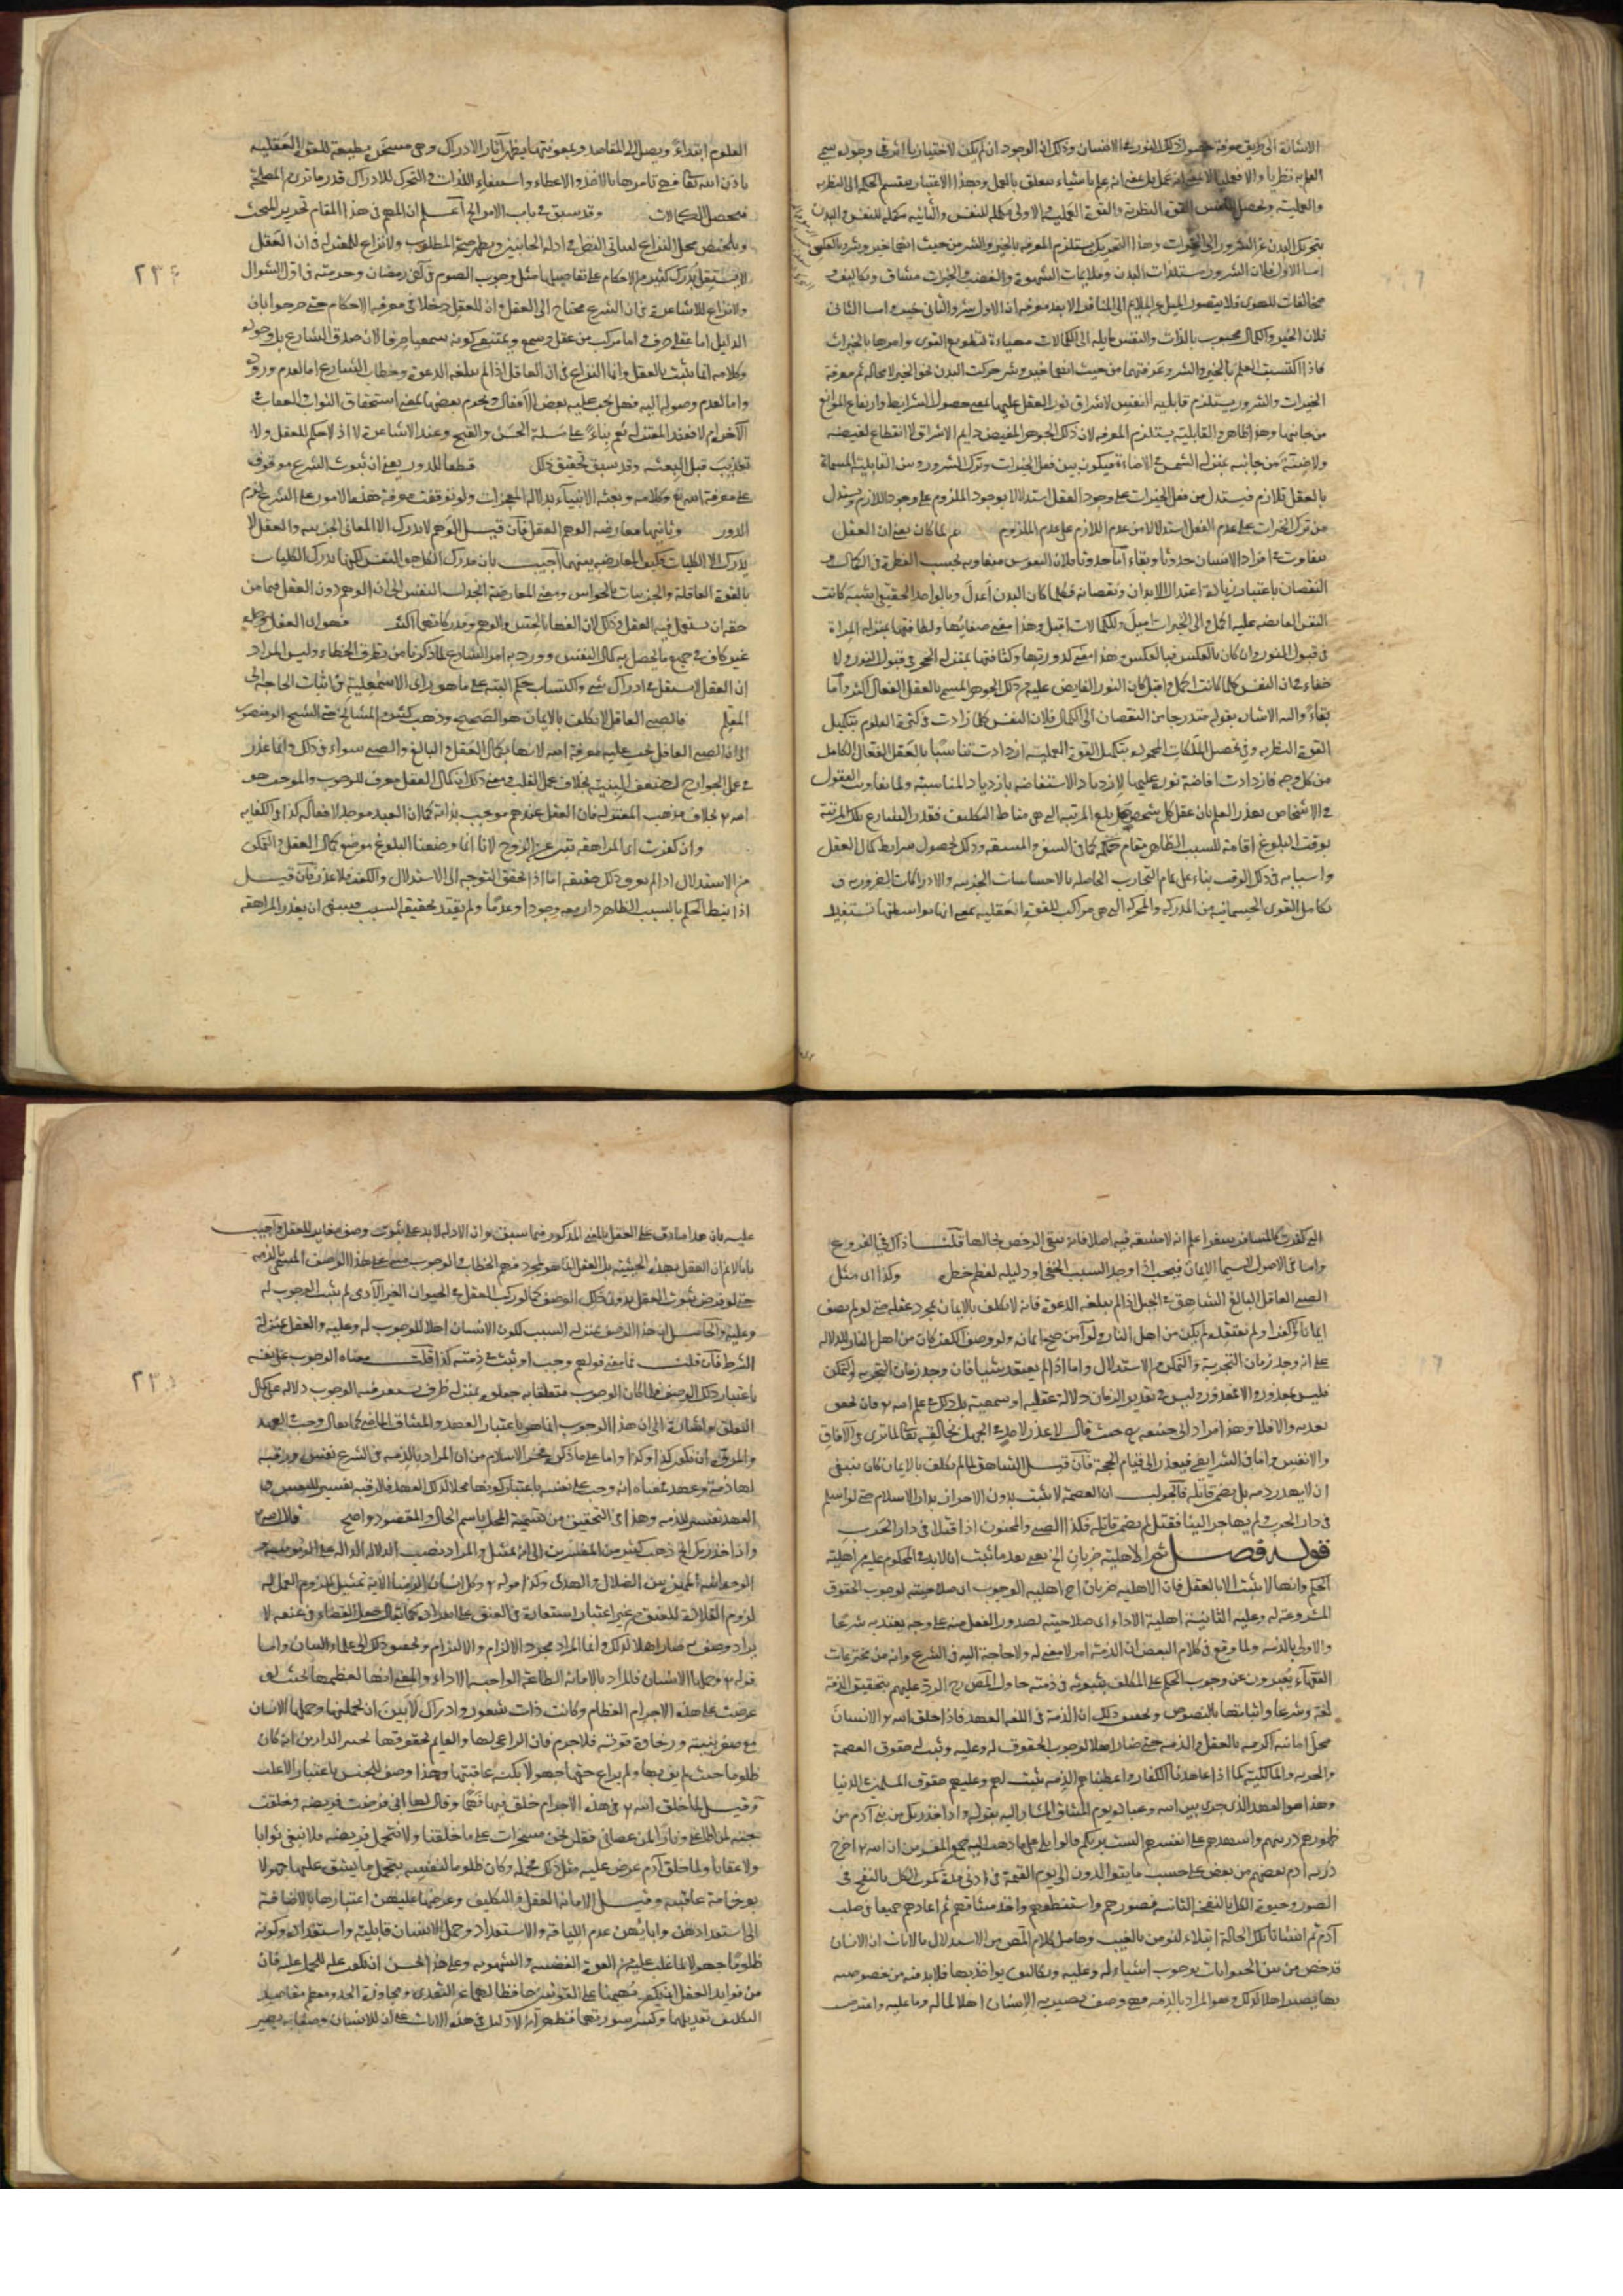 الاشارة الى طريق معرفة حصول ذلك النور في الانسان وذلك ان الوجود ان لم يكن لاختيارنا اثر في وجوده يسمى
والعملية وتحصل للنفس القوة النظرية والقوة العملية والاولى مكملة للنفس والثانية مكملة للنفس والبدن
بتحريك البدن عن الشرور الى الخيرات وهذا التحريك يستلزم المعرفة بالخير والشر من حيث
اما الاول فلان الشرور مستلذات البدن وملايمات الشهوة والغضب والخيرات مشاق وتكاليف و
مخالفات للهوى فلا يتصور الميل عن الملايم الى المنافر الا بعد معرفة ان الاول شر والثاني خير واما الثاني
فلان الخير والكمال محبوب بالذات والنفس مايلة الى الكمالات
الخيرات والشرور يستلزم قابلية النفس لاشراق نور العقل عليها بمعنى حصول الشرايط وارتفاع الموانع
من جانبها وهذا ظاهر والقابلية يستلزم المعرفة لان ذلك الجوهر المفيض دايم الاشراق لا انقطاع لفيضه
ولا ضنة من جانبه بمنزلة الشمس في الاضاءة فيكون بين فعل الخيرات وترك الشرور وبين القابلية المسماة
بالعقل تلازم فيستدل من فعل الخيرات على وجود العقل استدلالا بوجود الملزوم على وجود اللازم ويستدل
من ترك الخيرات على عدم العقل استدلالا من عدم اللازم على عدم الملزوم ثم لما كان يعني ان العقل
متفاوت في افراد الانسان حدوثا وبقاء اما حدوثا فلان النفوس متفاوتة بحسب الفطرة في الكمال و
النقصان باعتبار زيادة اعتدال الابدان ونقصانه فكلما كان البدن اعدل وبالواحد الحقيقي اشبه كانت
النفس الفايضة عليه اكمل والى الخيرات اميل وللكمالات اقبل وهذا معنى صفائها ولطافتها بمنزلة المرآة
في قبول النور وان كان بالعكس فبالعكس وهذا معنى كدورتها وكثافتها بمنزلة الحجر في قبول النور ولا
خفاء في ان النفس كلما كانت اكمل واقبل كان النور الفايض عليها من ذلك الجوهر المسمى بالعقل الفعال اكثر واما
بقاء واليه الاشارة بقوله متدرجا من النقصان الى الكمال فلان النفس كلما زادت في كثرة العلوم بتكميل
القوة النظرية وفي تحصيل الملكات المحمودة بتكميل القوة العملية ازدادت تناسبا بالعقل الفعال الكامل
من كل وجه فازدادت افاضة نوره عليها لازدياد الاستفاضة بازدياد المناسبة ولما تفاوت العقول
في الاشخاص تعذر العلم بان عقل كل شخص هل بلغ المرتبة التي هي مناط التكليف فقدر الشارع تلك المرتبة
بوقت البلوغ اقامة للسبب الظاهر مقام حكمه كما في السفر والمشقة وذلك لحصول شرايط كمال العقل
واسبابه في ذلك الوقت بناء على تمام التجارب الحاصلة بالاحساسات الجزئية والادراكات الضرورية و
تكامل القوى الجسمانية من المدركة والمحركة التي هي مراكب للقوة العقلية بمعنى انها بواسطتها تستفيد
العلوم ابتداء وتصل الى المقاصد وبمعونتها يظهر آثار الادراك وهي مسخرة ومطيعة للقوة العقلية
باذن الله تعالى فهي تامرها بالاخذ والاعطاء واستيفاء اللذات والتحرك للادراك قدر ما ترى من المصلحة
فتحصل الكمالات وقد سبق في باب الامر الخ اعلم ان المهم في هذا المقام تحرير المبحث
وتلخيص محل النزاع ليتأتى النظر في ادلة الجانبين ويظهر صحة المطلوب ولا نزاع للمعتزلة في ان العقل
لا يستقل بدرك كثير من الاحكام على تفاصيلها مثل وجوب الصوم في آخر رمضان وحرمته في اول الشوال
ولا نزاع للاشاعرة في ان الشرع محتاج الى العقل وان للعقل دخلا في معرفة الاحكام حتى صرحوا بان
الدليل اما عقلي صرف واما مركب من عقلي وسمعي ويمتنع كونه سمعيا صرفا لان صدق الشارع بل وجوده
وكلامه انما يثبت بالعقل وانما النزاع في ان العاقل اذا لم تبلغه الدعوة وخطاب الشارع اما لعدم وروده
واما لعدم وصوله اليه فهل يجب عليه بعض الافعال ويحرم بعضها بمعنى استحقاق الثواب والعقاب في
الآخرة ام لا فعند المعتزلة نعم بناء على مسئلة الحسن والقبح وعند الاشاعرة لا اذ لا حكم للعقل ولا
تعذيب قبل البعثة وقد سبق تحقيق ذلك قطعا للدور يعني ان ثبوت الشرع موقوف
على معرفة الله تع وكلامه وبعثة الانبياء بدلالة المعجزات ولو توقفت معرفة هذه الامور على الشرع لزم
الدور وثانيهما معارضة الوهم العقل فان قيل الوهم لا يدرك الا المعاني الجزئية والعقل لا
يدرك الا الكليات فكيف المعارضة بينهما اجيب بان مدرك الكل هو النفس لكنها تدرك الكليات
بالقوة العاقلة والجزئيات بالحواس ومعنى المعارضة انجذاب النفس الى آلة الوهم دون العقل فيما من
حقه ان يستعمل فيه العقل وذلك لان الفها بالحس والوهم ومدركاتهما اكثر فهو ان العقل وحده
غير كاف في جميع ما يحصل به كمال النفس وورد به امر الشارع لما ذكرنا من تطرق الخطاء وليس المراد
ان العقل لا يستقل في ادراك شيء واكتساب حكم البتة على ما هو راى الاسمعيلية في اثبات الحاجة الى
المعلم فالصبي العاقل لا يكلف بالايمان هو الصحيح وذهب كثير من المشايخ حتى الشيخ ابو منصور
الى ان الصبي العاقل يجب عليه معرفة الله لانها بكمال العقل والبالغ والصبي سواء في ذلك وانما عذر
في عمل الجوارح لضعف البنية بخلاف عمل القلب ومعنى ذلك ان كمال العقل معرف للوجوب والموجب هو
الله تع بخلاف مذهب المعتزلة فان العقل عندهم موجب بذاته كما ان العبد موجد لافعاله كذا في الكفاية
وان كفرت اى المراهقة تبين عن الزوج لانا انما وضعنا البلوغ موضع كمال العقل والتمكن
من الاستدلال اذا لم يعرف ذلك حقيقة اما اذا تحقق التوجه الى الاستدلال والكفر فلا عذر فان قيل
اذا نيط الحكم بالسبب الظاهر دار معه وجودا وعدما ولم يعتد بحقيقة السبب فينبغي ان يعذر المراهقة
التي كفرت كالمسافر سفرا علم انه لا مشقة فيه اصلا فانه تبقى الرخص بحالها قلنا ذاك في الفروع
واما في الاصول لا سيما الايمان فيجب اذا وجد السبب الخفي او دليله لعظم خطره وكذا اى مثل
الصبي العاقل البالغ الشاهق في الجبل اذا لم يبلغه الدعوة فانه لا يكلف بالايمان بمجرد عقله حتى لو لم يصف
ايمانا ولا كفرا ولم يعتقده لم يكن من اهل النار ولو آمن صح ايمانه ولو وصف الكفر كان من اهل النار للدلالة
على انه وجد زمان التجربة والتمكن من الاستدلال واما اذا لم يعتقد شيئا فان وجد زمان التجربة والتمكن
فليس بمعذور والا فمعذور وليس في تقدير الزمان دلالة عقلية او سمعية بل ذلك في علم الله تع فان تحقق
يعذبه والا فلا وهذا مراد ابي حنيفة رح حيث قال لا عذر لاحد في الجهل بخالقه تعالى لما يرى في الآفاق
والانفس واما في الشرايع فيعذر الى قيام الحجة فان قيل الشاهق لما لم يكلف بالايمان كان ينبغي
ان لا يهدر دمه بل يضمن قاتله فالجواب ان العصمة لا يثبت بدون الاحراز بدار الاسلام حتى لو اسلم
في دار الحرب ولم يهاجر الينا فقتل لم يضمن قاتله فكذا الصبي والمجنون اذا قتلا في دار الحرب
قوله فصل ثم الاهلية ضربان الخ يعني بعد ما ثبت انه لا بد في المحكوم عليه من اهليته
للحكم وانها لا يثبت الا بالعقل فان الاهلية ضربان احدهما اهلية الوجوب اى صلاحيته لوجوب الحقوق
المشروعة له وعليه الثانية اهلية الاداء اى صلاحيته لصدور الفعل منه على وجه يعتد به شرعا
والاولى بالذمة ولما وقع في كلام البعض ان الذمة امر لا معنى له ولا حاجة اليه في الشرع وانه من مخترعات
الفقهاء يعبرون عن وجوب الحكم على المكلف بثبوته في ذمته حاول المص رح الرد عليهم بتحقيق الذمة
لغة وشرعا واثباتها بالنصوص وتحقيق ذلك ان الذمة في اللغة العهد فاذا خلق الله تع الانسان
محل امانته اكرمه بالعقل والذمة حتى صار اهلا لوجوب الحقوق له وعليه وثبت له حقوق العصمة
والحرية والمالكية كما اذا عاهدنا الكفار واعطيناهم الذمة يثبت لهم وعليهم حقوق المسلمين في الدنيا
وهذا هو العهد الذي جرى بين الله وعباده يوم الميثاق المشار اليه بقوله واذ اخذ ربك من بني آدم من
ظهورهم ذريتهم واشهدهم على انفسهم الست بربكم قالوا بلى على ما ذهب اليه جمع من المفسرين ان الله تع اخرج
ذرية آدم بعضهم من بعض على حسب ما يتوالدون الى يوم القيمة في ادنى مدة كموت الكل بالنفخ في
الصور وحيوة الكل بالنفخة الثانية فصورهم واستنطقهم واخذ ميثاقهم ثم اعادهم جميعا في صلب
آدم ثم انسانا تلك الحالة ابتلاء لنؤمن بالغيب وحاصل كلام المص من الاستدلال بالآيات ان الانسان
قد خص من بين الحيوانات بوجوب اشياء له وعليه وتكاليف يؤاخذ بها فلا بد فيه من خصوصية
بها يصير اهلا لذلك وهو المراد بالذمة فهي وصف يصير به الانسان اهلا لما له وما عليه واعترض
عليه بان هذا صادق على العقل بالمعنى المذكور فيما سبق وان الادلة لا تدل على ثبوت وصف مغاير للعقل واجيب
بانا لا نم ان العقل بهذه الحيثية بل العقل انما هو لمجرد فهم الخطاب والوجوب مبني على هذا الوصف المسمى بالذمة
حتى لو فرض ثبوت العقل بدون ذلك الوصف كما لو ركب العقل في الحيوان الغير الآدمي لم يثبت الوجوب له
وعليه والحاصل ان هذا الوصف بمنزلة السبب لكون الانسان اهلا للوجوب له وعليه والعقل بمنزلة
الشرط فان قلت فما معنى قولهم وجب او ثبت في ذمته كذا قلت معناه الوجوب على نفسه
باعتبار ذلك الوصف فلما كان الوجوب متعلقا به جعلوه بمنزلة ظرف يستقر فيه الوجوب دلالة على كمال
التعلق واشارة الى ان هذا الوجوب انما هو باعتبار العهد والميثاق الماضي كما يقال وجب في العهد
والمروة ان يكون كذا وكذا واما على ما ذكره فخر الاسلام من ان المراد بالذمة في الشرع نفس ورقبة
لها ذمة وعهد فمعناه انه وجب على نفسه باعتبار كونها محلا لذلك العهد فالرقبة تفسير للنفس و
العهد تفسير للذمة وهذا في التحقيق من تسمية المحل باسم الحال والمقصود واضح
واذ اخذ ربك الخ ذهب كثير من المفسرين الى انه تمثيل والمراد نصب الدلالة الدالة على الربوبية و
الوحدانية المميز بين الضلال والهدى وكذا قوله تع وكل انسان الزمناه الآية تمثيل للزوم العمل له
لزوم القلادة للعنق من غير اعتبار استعارة في العنق على انفراده كما يقال جعل القضاء في عنقه لا
يراد وصف به صار اهلا لذلك وانما المراد مجرد الالزام والالتزام
قوله تع وحملها الانسان فالمراد بالامانة الطاعة الواجبة الاداء والمعنى انها لعظمها بحيث لو
عرضت على هذه الاجرام العظام وكانت ذات شعور وادراك لأبين ان يحملنها وحملها الانسان
مع ضعف بنيته ورخاوة قوته فلا جرم فان الراعي لها والقايم بحقوقها بخير الدارين انه كان
ظلوما حيث لم يف بها ولم يراع حقها جهولا بكنه عاقبتها وهذا وصف للجنس باعتبار الاغلب
وقيل لما خلق الله تع هذه الاجرام خلق فيها فهما وقال لها اني فرضت فريضة وخلقت
جنة لمن اطاعني ونارا لمن عصاني فقلن نحن مسخرات على ما خلقتنا ولا نتحمل فريضة ولا نبغي ثوابا
ولا عقابا ولما خلق آدم عرض عليه مثل ذلك فحمله وكان ظلوما لنفسه بتحمل ما يشق عليها جهولا
بوخامة عاقبته وقيل الامانة العقل والتكليف وعرضها عليهن اعتبارها بالاضافة
الى استعدادهن وابائهن عدم اللياقة والاستعداد وحمل الانسان قابليته واستعداده وكونه
ظلوما جهولا لما غلب عليه من القوة الغضبية والشهوية وعلى هذا يحسن ان يكون علة للحمل عليه فان
من فوايد العقل ان يكون مهيمنا على القوتين حافظا لهما عن التعدي ومجاوزة الحد ومعظم مقاصد
التكليف تعديلهما وكسر سورتهما فظهر انه لا دليل في هذه الآيات على ان للانسان وصفا به يصير